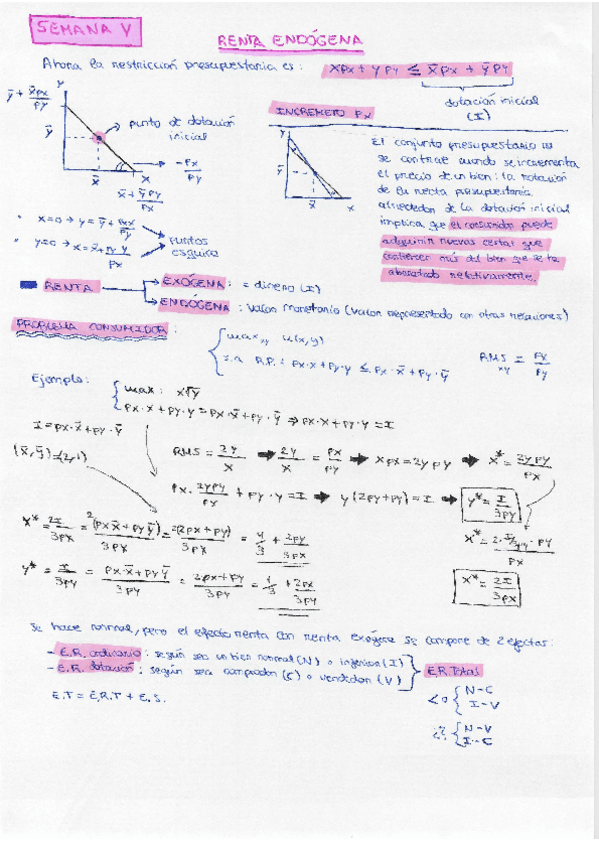 SEMANA V
RENTA ENDÓGENA
Ahora la restricción presupuestaria es: xpx + ypy ≤ x̄px + ȳpy
dotación inicial
(I)
y
ȳ + x̄px/py
ȳ
x̄
x
x̄ + ȳpy/px
punto de dotación
inicial
-px/py
INCREMETO Px
y
ȳ
x̄
x
El conjunto presupuestario
se contrae cuando se incrementa
el precio de un bien: la rotación
de la recta presupuestaria
alrededor de la dotación inicial
implica que el consumidor puede
adquirir nuevas cestas que
contienen más del bien que se ha
abaratado relativamente.
x=0 → y = ȳ + x̄px/py
y=0 → x = x̄ + py ȳ/px
puntos
esquina
RENTA
EXÓGENA: = dinero (I)
ENDÓGENA: valor monetario (valor representado con otras relaciones)
PROBLEMA CONSUMIDOR:
max x,y u(x,y)
s.a R.P.: px·x + py·y ≤ px·x̄ + py·ȳ
RMS xy = px/py
Ejemplo:
max: x√y
px·x + py·y = px·x̄ + py·ȳ ⇒ px·x + py·y = I
I = px·x̄ + py·ȳ
(x̄, ȳ) = (2,1)
RMS = 2y/x → 2y/x = px/py → xpx = 2ypy → x* = 2ypy/px
px · 2ypy/px + py·y = I → y(2py+py) = I → y* = I/3py
x* = 2I/3px = 2(px x̄ + py ȳ)/3px = 2(2px + py)/3px = 4/3 + 2py/3px
x* = 2·I/3py · py/px
y* = I/3py = px x̄ + py ȳ/3py = 2px + py/3py = 1/3 + 2px/3py
x* = 2I/3px
Se hace normal, pero el efecto renta con renta exógena se compone de 2 efectos:
- E.R. ordinario: según sea un bien normal (N) o inferior (I)
- E.R. dotación: según sea comprador (C) o vendedor (V)
E.R Total
E.T = E.R.T + E.S.
<0 { N-C
I-V
¿? { N-V
I-C